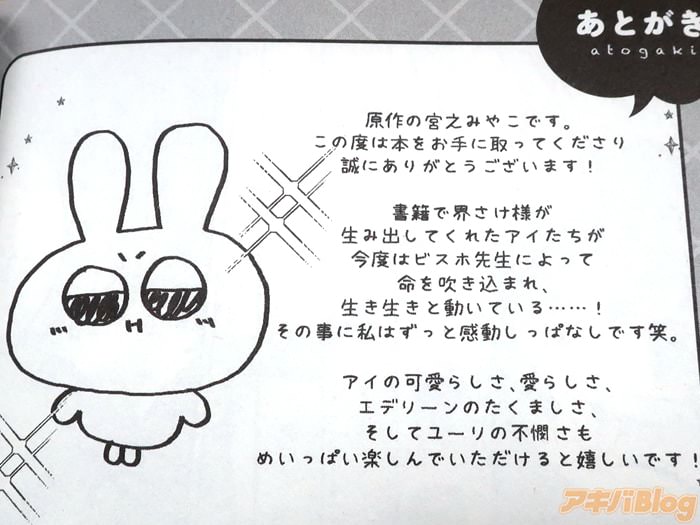 あとがき
atogaki
原作の宮之みやこです。
この度は本をお手に取ってくださり
誠にありがとうございます！
書籍で界さけ様が
生み出してくれたアイたちが
今度はビスホ先生によって
命を吹き込まれ、
生き生きと動いている……！
その事に私はずっと感動しっぱなしです笑。
アイの可愛らしさ、愛らしさ、
エデリーンのたくましさ、
そしてユーリの不憫さも
めいっぱい楽しんでいただけると嬉しいです！
アキバBlog